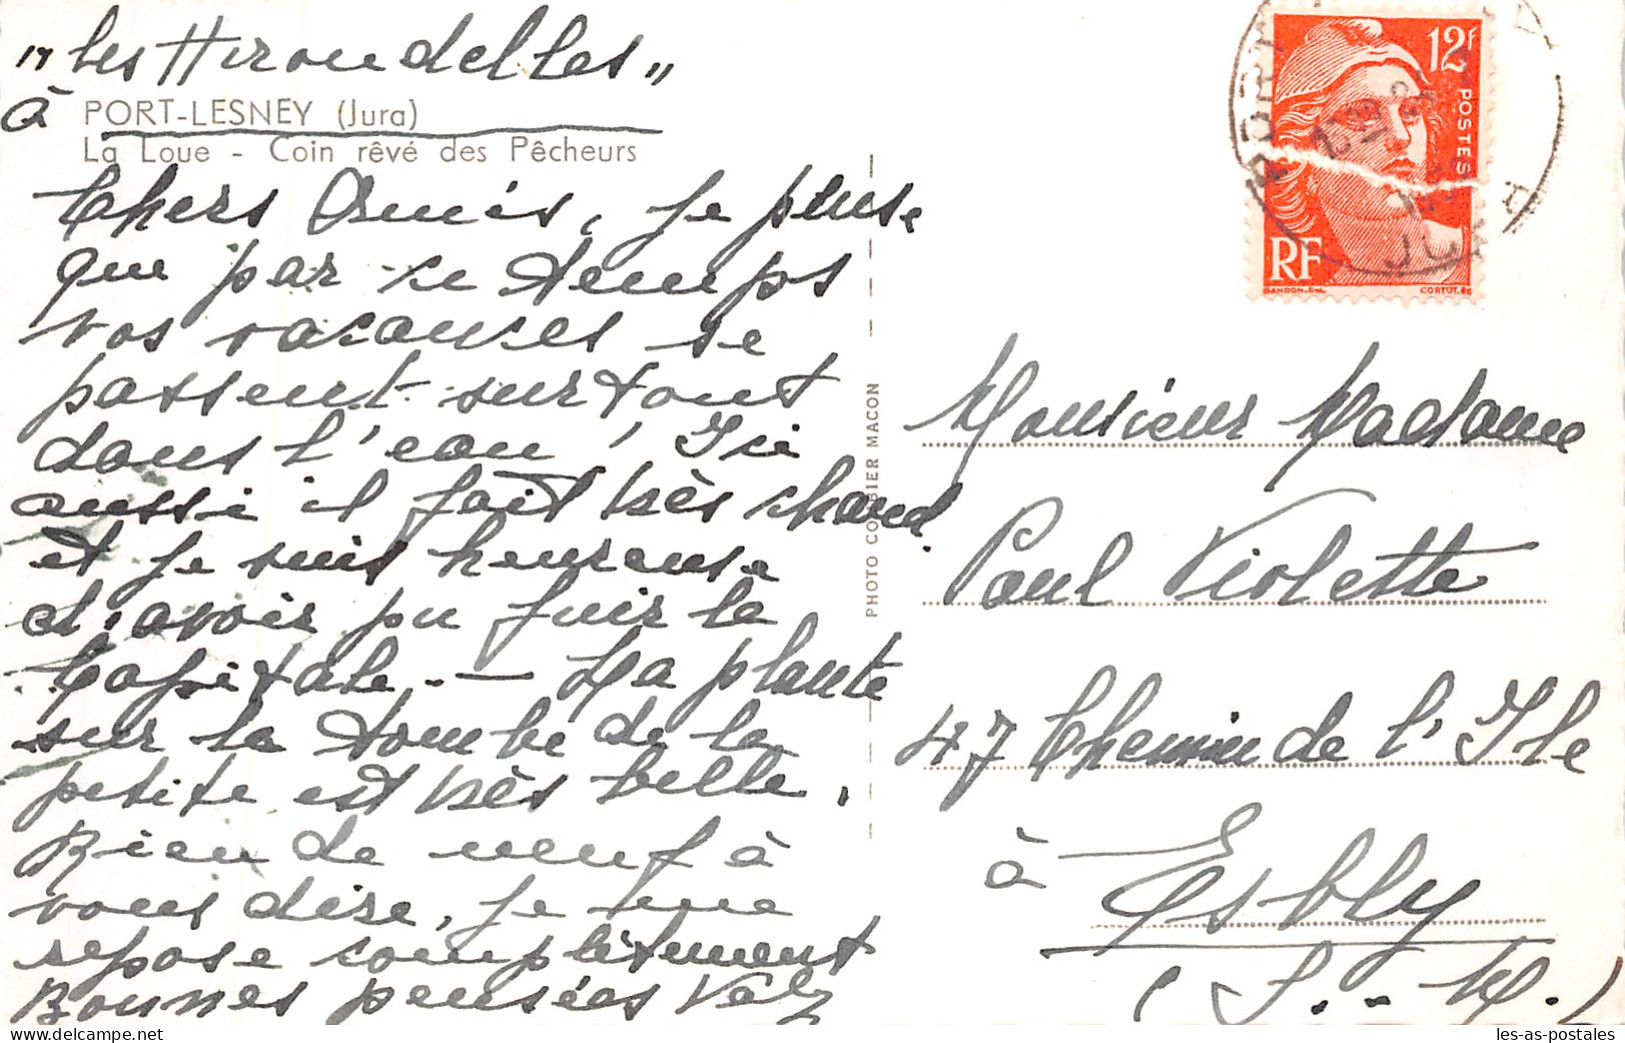 "Les Hirondelles"
à PORT-LESNEY (Jura)
La Loue - Coin rêvé des Pêcheurs
Chers Amis, Je pense
que par ce temps
vos vacances se
passent surtout
dans l'eau! Ici
aussi il fait très chaud
et je suis heureuse
d'avoir pu fuir la
Capitale. — La plante
sur la tombe de la
petite est très belle.
Rien de neuf à
vous dire, je me
repose complètement
Bonnes pensées
PHOTO COMBIER MACON
12F
POSTES
RF
GANDON.DEL.
CORTOT.SC
JURA
Monsieur Madame
Paul Violette
47 Chemin de l'Ile
à Esbly
(S.-M.)
delcampe.net
les-as-postales